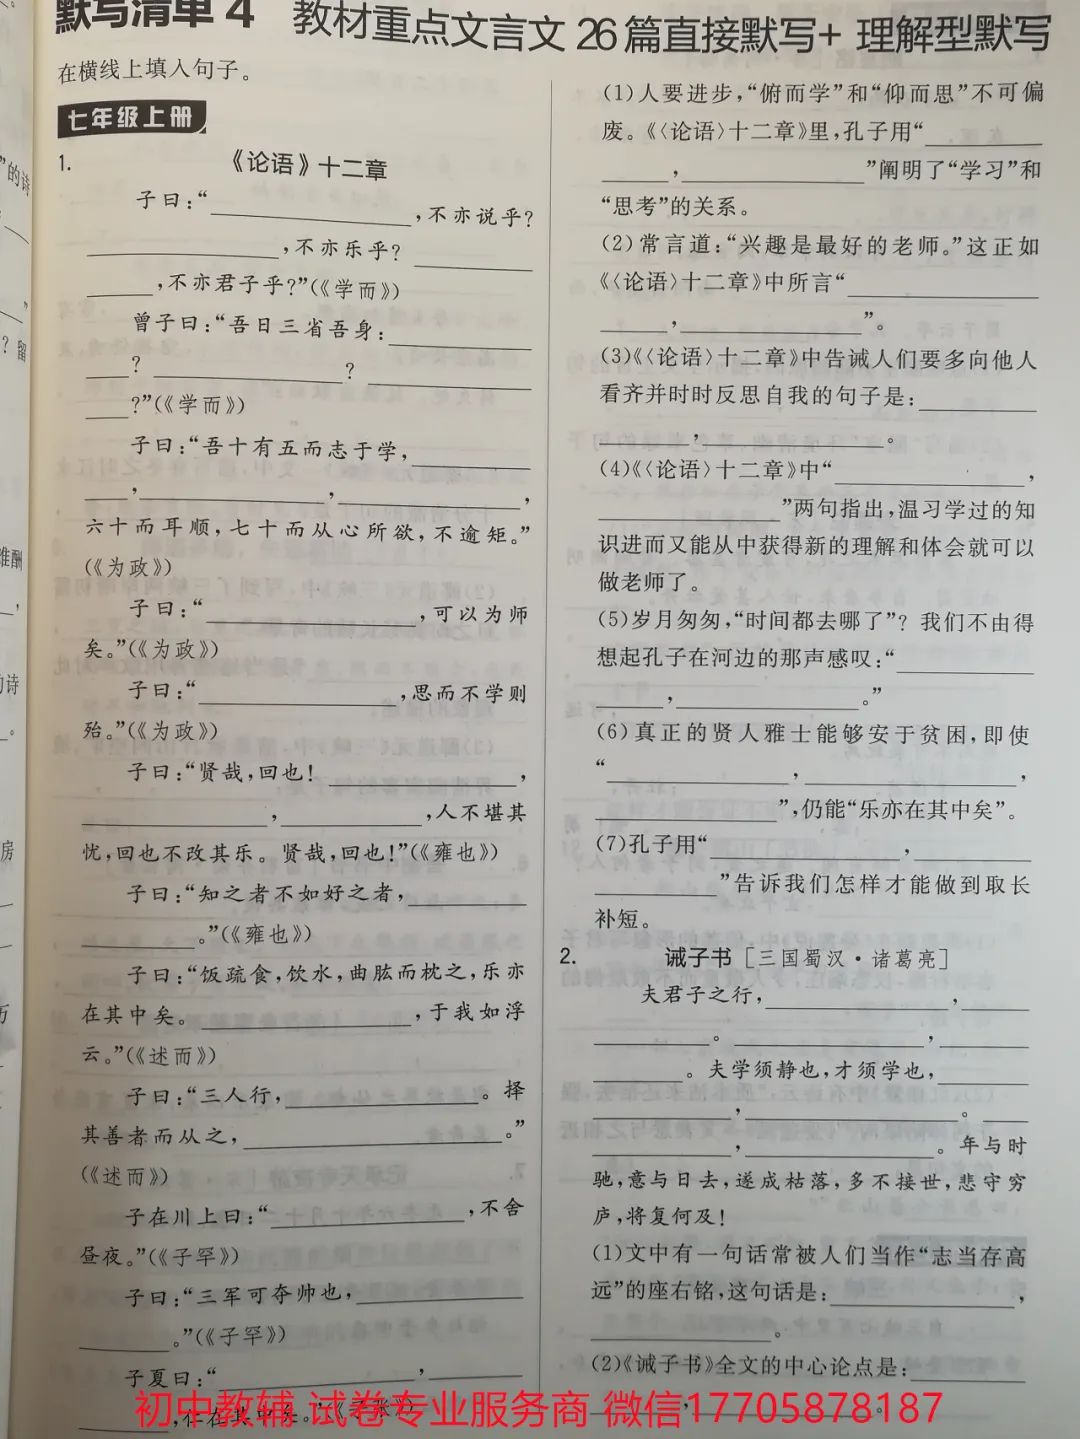 默写清单4 教材重点文言文26篇直接默写+理解型默写
在横线上填入句子。
七年级上册
1. 《论语》十二章
子曰:“____,不亦说乎?
____,不亦乐乎?____
____,不亦君子乎?”(《学而》)
曾子曰:“吾日三省吾身:____
____?____?____
____?”(《学而》)
子曰:“吾十有五而志于学,____
____,____,____,
六十而耳顺,七十而从心所欲,不逾矩。”
(《为政》)
子曰:“____,可以为师
矣。”(《为政》)
子曰:“____,思而不学则
殆。”(《为政》)
子曰:“贤哉,回也!____,
____,____,人不堪其
忧,回也不改其乐。贤哉,回也!”(《雍也》)
子曰:“知之者不如好之者,____
____。”(《雍也》)
子曰:“饭疏食,饮水,曲肱而枕之,乐亦
在其中矣。____,于我如浮
云。”(《述而》)
子曰:“三人行,____。择
其善者而从之,____。”
(《述而》)
子在川上曰:“____,不舍
昼夜。”(《子罕》)
子曰:“三军可夺帅也,____
____。”(《子罕》)
子夏曰:“____,____
____,仁在其中矣。”(《子张》)
(1)人要进步,“俯而学”和“仰而思”不可偏
废。《〈论语〉十二章》里,孔子用“____
____,____”阐明了“学习”和
“思考”的关系。
(2)常言道:“兴趣是最好的老师。”这正如
《〈论语〉十二章》中所言“____
____,____”。
(3)《〈论语〉十二章》中告诫人们要多向他人
看齐并时时反思自我的句子是:____
____,____。
(4)《〈论语〉十二章》中“____,
____”两句指出,温习学过的知
识进而又能从中获得新的理解和体会就可以
做老师了。
(5)岁月匆匆,“时间都去哪了”?我们不由得
想起孔子在河边的那声感叹:“____
____,____。”
(6)真正的贤人雅士能够安于贫困,即使
“____,____,
____”,仍能“乐亦在其中矣”。
(7)孔子用“____,____
____”告诉我们怎样才能做到取长
补短。
2. 诫子书[三国蜀汉·诸葛亮]
夫君子之行,____,____
____。____,____
____。夫学须静也,才须学也,____
____,____。
____,____。年与时
驰,意与日去,遂成枯落,多不接世,悲守穷
庐,将复何及!
(1)文中有一句话常被人们当作“志当存高
远”的座右铭,这句话是:____,
____。
(2)《诫子书》全文的中心论点是:____
____,____。
初中教辅 试卷专业服务商 微信17705878187